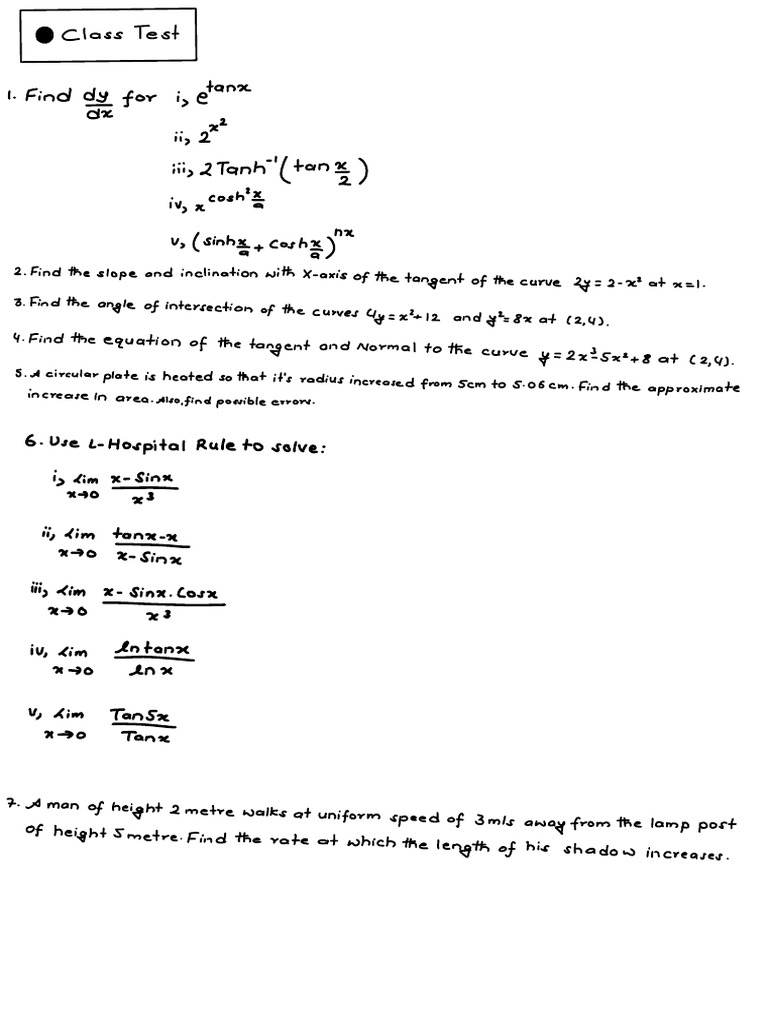 ● Class Test
1. Find dy/dx for i, e^tanx
ii, 2^x²
iii, 2 Tanh⁻¹(tan x/2)
iv, x^cosh² x/a
v, (sinh x/a + cosh x/a)^nx
2. Find the slope and inclination with X-axis of the tangent of the curve 2y = 2-x² at x=1.
3. Find the angle of intersection of the curves 4y = x²+12 and y²= 8x at (2,4).
4. Find the equation of the tangent and Normal to the curve y = 2x³-5x²+8 at (2,4).
5. A circular plate is heated so that it's radius increased from 5cm to 5.06 cm. Find the approximate
increase in area. Also, find possible errors.
6. Use L-Hospital Rule to solve:
i, Lim x→0 x-Sinx / x³
ii, Lim x→0 tanx-x / x-Sinx
iii, Lim x→0 x-Sinx.Cosx / x³
iv, Lim x→0 ln tanx / ln x
v, Lim x→0 Tan5x / Tanx
7. A man of height 2 metre walks at uniform speed of 3m/s away from the lamp post
of height 5 metre. Find the rate at which the length of his shadow increases.